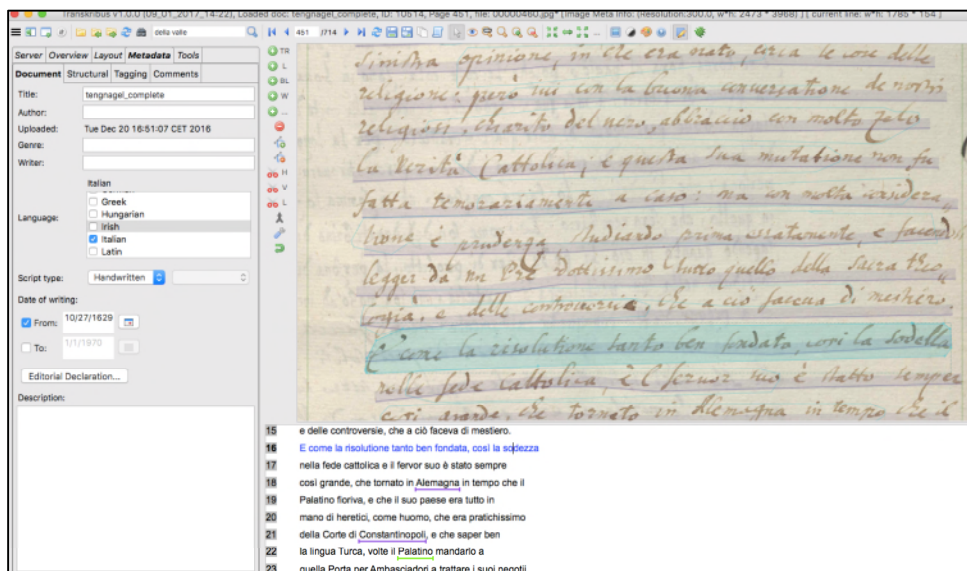 Transkribus v1.0.0 (09_01_2017_14:22), Loaded doc: tengnagel_complete, ID: 10514, Page 451, file: 00000460.jpg* [Image Meta Info: (Resolution:300.0, w*h: 2473 * 3968) ] [ current line: w*h: 1765 * 154 ]
della valle
451 /714
Server Overview Layout Metadata Tools
Document Structural Tagging Comments
Title: tengnagel_complete
Author:
Uploaded: Tue Dec 20 16:51:07 CET 2016
Genre:
Writer:
Italian
Language:
Greek
Hungarian
Irish
Italian
Latin
Script type: Handwritten
Date of writing:
From: 10/27/1629
To: 1/1/1970
Editorial Declaration...
Description:
TR
L
BL
W
...
H
V
L
sinistra opinione, in che era nato, circa le cose delle
religione: però qui con la buona conversatione de nostri
religiosi, chiarito del vero, abbraccio con molto zelo
la Verità Cattolica; e questa sua mutatione non fu
fatta temerariamente a caso: ma con molta considera„
tione e prudenza, studiando prima esatamente, e facendosi
legger da un Pre dottissimo tutto quello della sacra theo„
logia, e delle controversie, che a ciò faceva di mestiero.
E come la risolutione tanto ben fondata, cosi la sodezza
nella fede Cattolica, e l fervor suo è stato sempre
cosi grande, che tornato in Alemagna in tempo che il
15 e delle controversie, che a ciò faceva di mestiero.
16 E come la risolutione tanto ben fondata, così la sodezza
17 nella fede cattolica e il fervor suo è stato sempre
18 così grande, che tornato in Alemagna in tempo che il
19 Palatino fioriva, e che il suo paese era tutto in
20 mano di heretici, come huomo, che era pratichissimo
21 della Corte di Constantinopoli, e che saper ben
22 la lingua Turca, volte il Palatino mandarlo a
23 quella Porta per Ambasciadori a trattare i suoi negotii